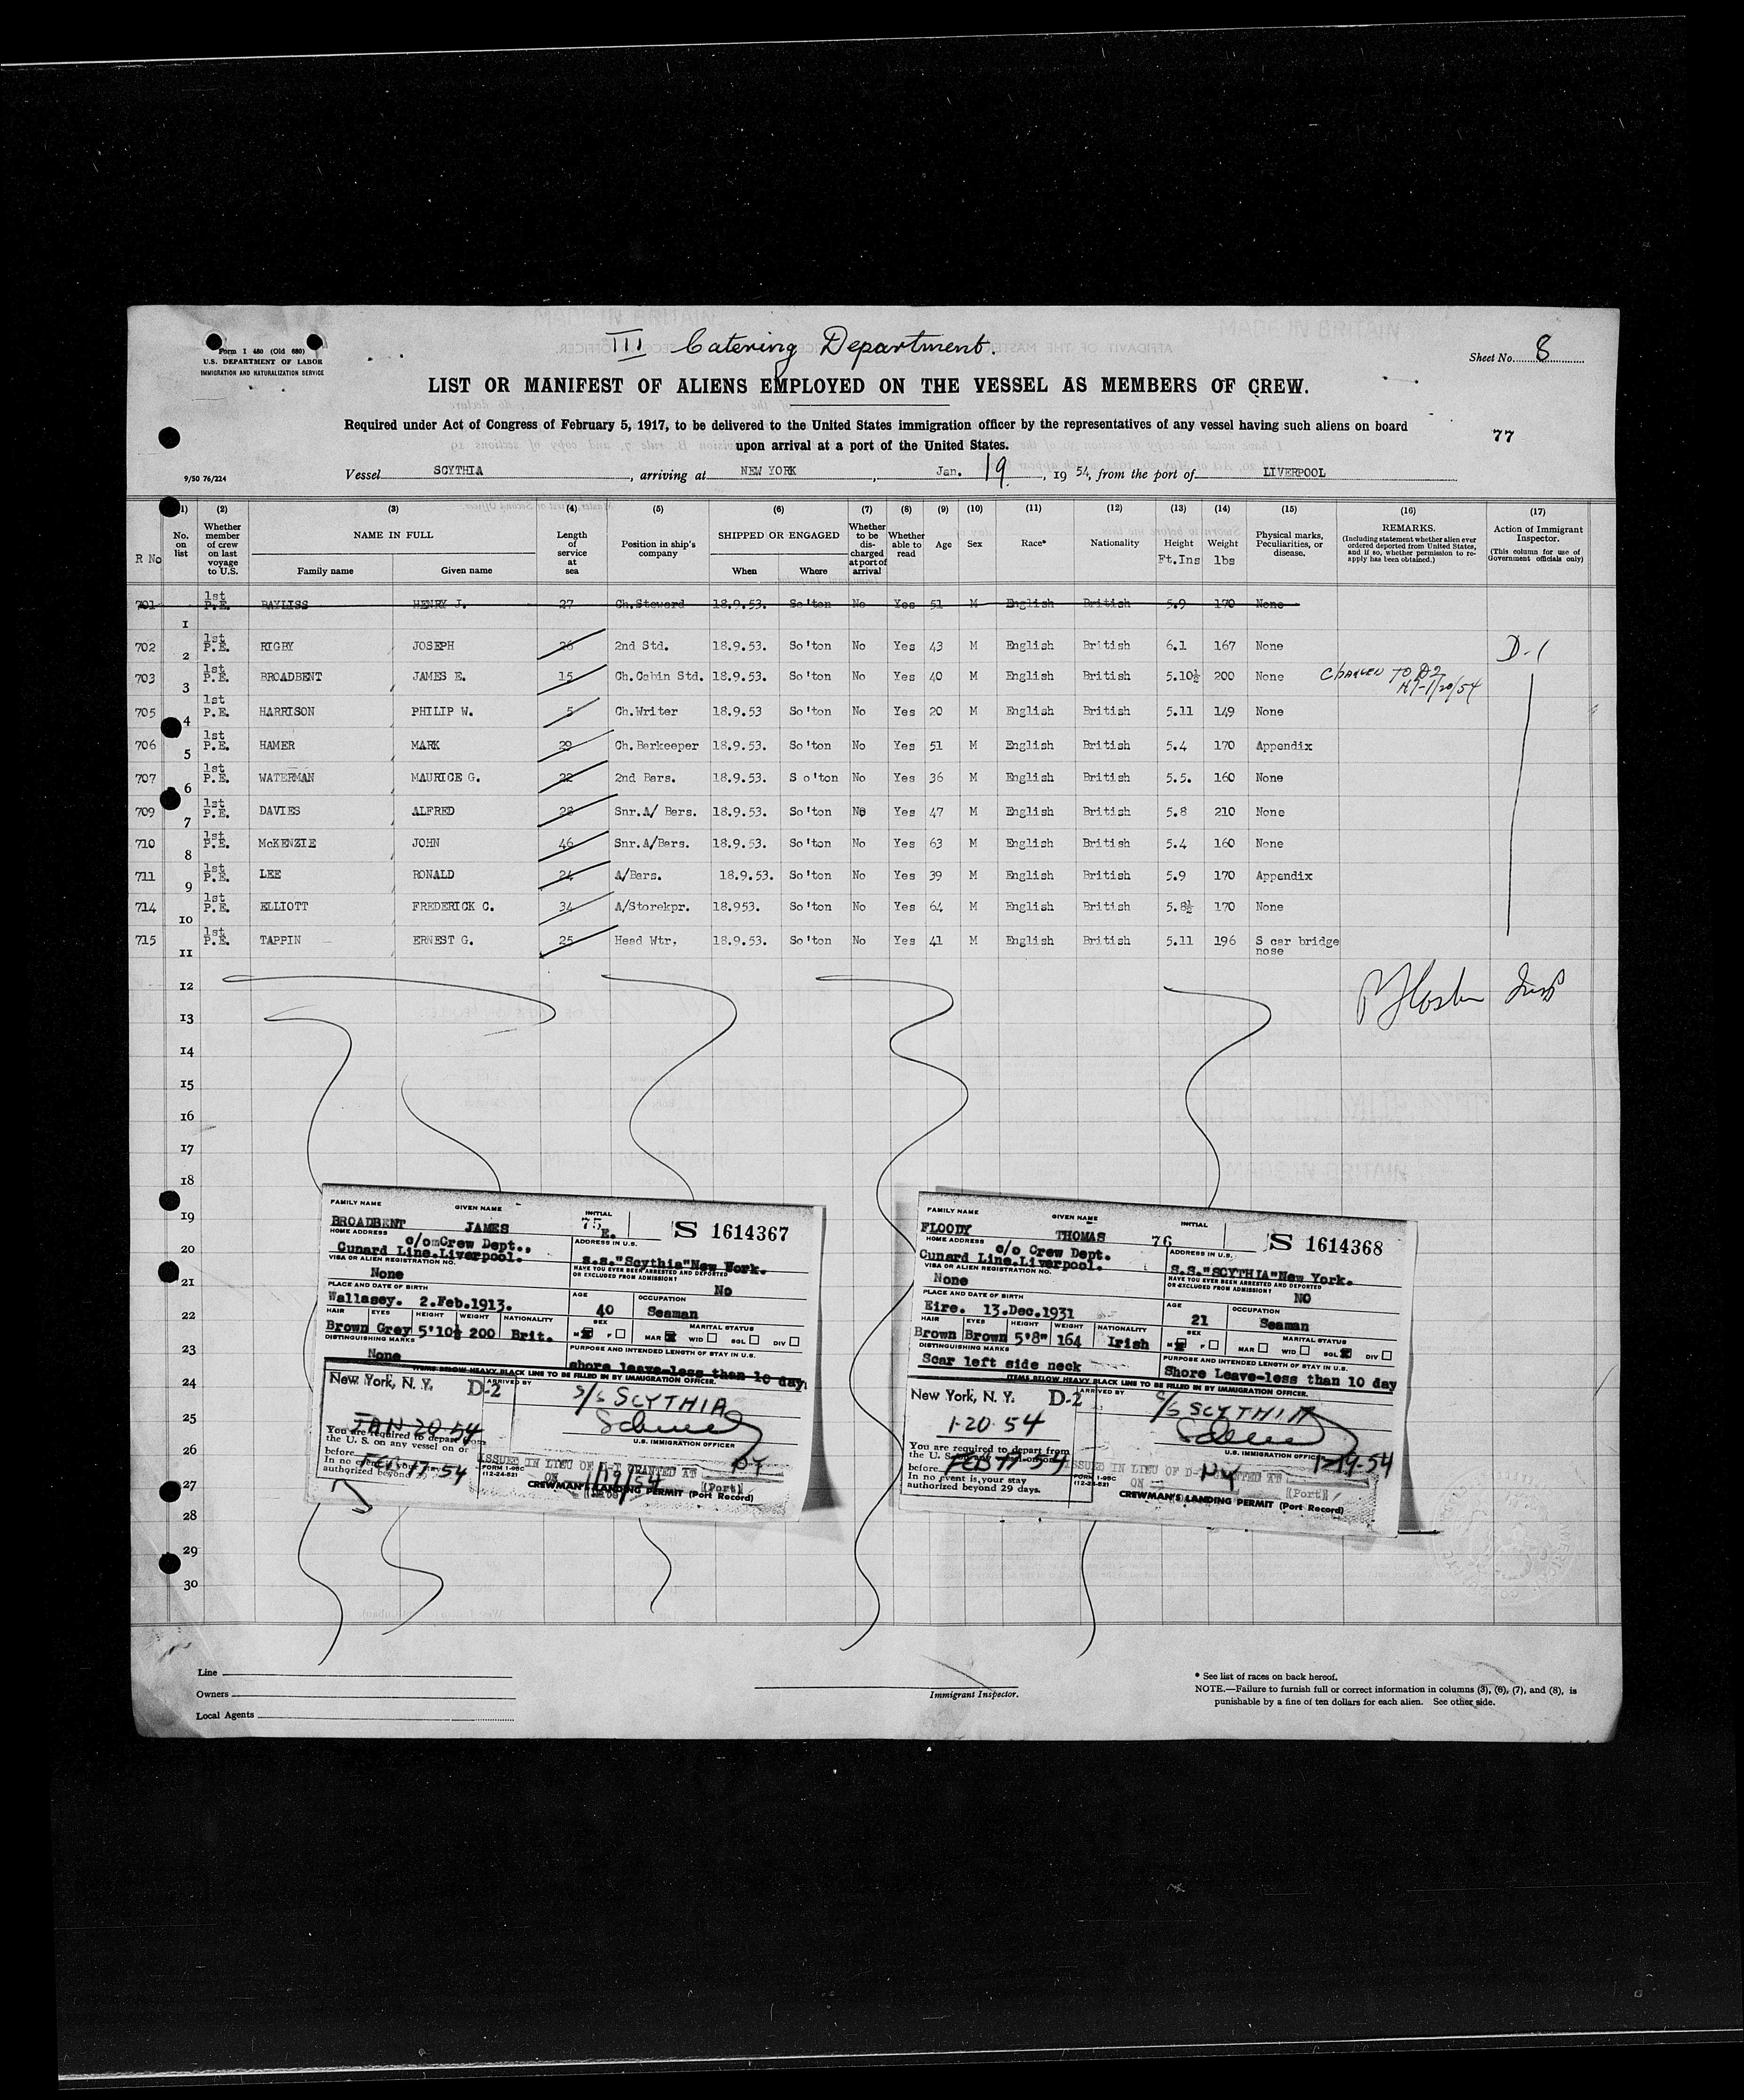 III Catering Department.
Form I 480 (Old 680)
U.S. DEPARTMENT OF LABOR
IMMIGRATION AND NATURALIZATION SERVICE
Sheet No. 8
LIST OR MANIFEST OF ALIENS EMPLOYED ON THE VESSEL AS MEMBERS OF CREW.
Required under Act of Congress of February 5, 1917, to be delivered to the United States immigration officer by the representatives of any vessel having such aliens on board
upon arrival at a port of the United States.
77
9/50 76/224
Vessel SCYTHIA, arriving at NEW YORK, Jan. 19, 1954, from the port of LIVERPOOL
R No (1) No. on list (2) Whether member of crew on last voyage to U.S. (3) NAME IN FULL Family name Given name (4) Length of service at sea (5) Position in ship's company (6) SHIPPED OR ENGAGED When Where (7) Whether to be discharged at port of arrival (8) Whether able to read (9) Age (10) Sex (11) Race* (12) Nationality (13) Height Ft.Ins (14) Weight lbs (15) Physical marks, Peculiarities, or disease, (16) REMARKS. (Including statement whether alien ever ordered deported from United States, and if so, whether permission to re-apply has been obtained.) (17) Action of Immigrant Inspector. (This column for use of Government officials only)
701 1 1st P.E. BAYLISS HENRY J. 27 Ch.Steward 18.9.53. So'ton No Yes 51 M English British 5.9 170 None
702 2 1st P.E. RIGBY JOSEPH 26 2nd Std. 18.9.53. So'ton No Yes 43 M English British 6.1 167 None D-1
703 3 1st P.E. BROADBENT JAMES E. 15 Ch.Cabin Std. 18.9.53. So'ton No Yes 40 M English British 5.10½ 200 None CHANGED TO D2 1/20/54
705 4 1st P.E. HARRISON PHILIP W. 5 Ch.Writer 18.9.53 So'ton No Yes 20 M English British 5.11 149 None
706 5 1st P.E. HAMER MARK 29 Ch.Barkeeper 18.9.53. So'ton No Yes 51 M English British 5.4 170 Appendix
707 6 1st P.E. WATERMAN MAURICE G. 22 2nd Bars. 18.9.53. S o'ton No Yes 36 M English British 5.5. 160 None
709 7 1st P.E. DAVIES ALFRED 28 Snr.A/ Bars. 18.9.53. So'ton No Yes 47 M English British 5.8 210 None
710 8 1st P.E. McKENZIE JOHN 46 Snr.A/Bars. 18.9.53. So'ton No Yes 63 M English British 5.4 160 None
711 9 1st P.E. LEE RONALD 24 A/Bars. 18.9.53. So'ton No Yes 39 M English British 5.9 170 Appendix
714 10 1st P.E. ELLIOTT FREDERICK C. 34 A/Storekpr. 18.953. So'ton No Yes 64 M English British 5.8½ 170 None
715 11 1st P.E. TAPPIN ERNEST G. 25 Head Wtr, 18.9.53. So'ton No Yes 41 M English British 5.11 196 S car bridge nose
12
13
14
15
16
17
18
19
20
21
22
23
24
25
26
27
28
29
30
FAMILY NAME GIVEN NAME INITIAL
BROADBENT JAMES 75 E. S 1614367
HOME ADDRESS c/o Crew Dept., ADDRESS IN U.S.
Cunard Line.Liverpool. S.S."Scythia"New York.
VISA OR ALIEN REGISTRATION NO. HAVE YOU EVER BEEN ARRESTED AND DEPORTED OR EXCLUDED FROM ADMISSION?
None No
PLACE AND DATE OF BIRTH AGE OCCUPATION
Wallasey. 2.Feb.1913. 40 Seaman
HAIR EYES HEIGHT WEIGHT NATIONALITY SEX MARITAL STATUS
Brown Grey 5'10½ 200 Brit. M F MAR WID SGL DIV
DISTINGUISHING MARKS PURPOSE AND INTENDED LENGTH OF STAY IN U.S.
None shore leave-less than 10 day
ITEMS BELOW HEAVY BLACK LINE TO BE FILLED IN BY IMMIGRATION OFFICER.
New York, N. Y. D-2 ARRIVED BY S/S SCYTHIA
JAN 20 54
U.S. IMMIGRATION OFFICER
You are required to depart from
the U. S. on any vessel on or
before FEB 17 54
In no event is your stay
authorized beyond 29
ISSUED IN LIEU OF D-1 GRANTED AT NY
ON 1/19/54 (Port)
FORM I-95C
(12-24-52)
CREWMAN'S LANDING PERMIT (Port Record)
FAMILY NAME GIVEN NAME INITIAL
FLOODY THOMAS 76 S 1614368
HOME ADDRESS c/o Crew Dept. ADDRESS IN U.S.
Cunard Line.Liverpool. S.S."SCYTHIA"New York.
VISA OR ALIEN REGISTRATION NO. HAVE YOU EVER BEEN ARRESTED AND DEPORTED OR EXCLUDED FROM ADMISSION?
None NO
PLACE AND DATE OF BIRTH AGE OCCUPATION
Eire. 13.Dec.1931 21 Seaman
HAIR EYES HEIGHT WEIGHT NATIONALITY SEX MARITAL STATUS
Brown Brown 5'8" 164 Irish M F MAR WID SGL DIV
DISTINGUISHING MARKS PURPOSE AND INTENDED LENGTH OF STAY IN U.S.
Scar left side neck Shore Leave-less than 10 day
ITEMS BELOW HEAVY BLACK LINE TO BE FILLED IN BY IMMIGRATION OFFICER.
New York, N. Y. D-2 ARRIVED BY S/S SCYTHIA
1-20-54
U.S. IMMIGRATION OFFICER
You are required to depart from
the U. S.
before FEB 17 54
In no event is your stay
authorized beyond 29 days.
ISSUED IN LIEU OF D-1 GRANTED AT NY 1-19-54
ON (Port)
FORM I-95C
(12-24-52)
CREWMAN'S LANDING PERMIT (Port Record)
Line
Owners
Local Agents
Immigrant Inspector.
* See list of races on back hereof.
NOTE.—Failure to furnish full or correct information in columns (3), (6), (7), and (8), is
punishable by a fine of ten dollars for each alien. See other side.